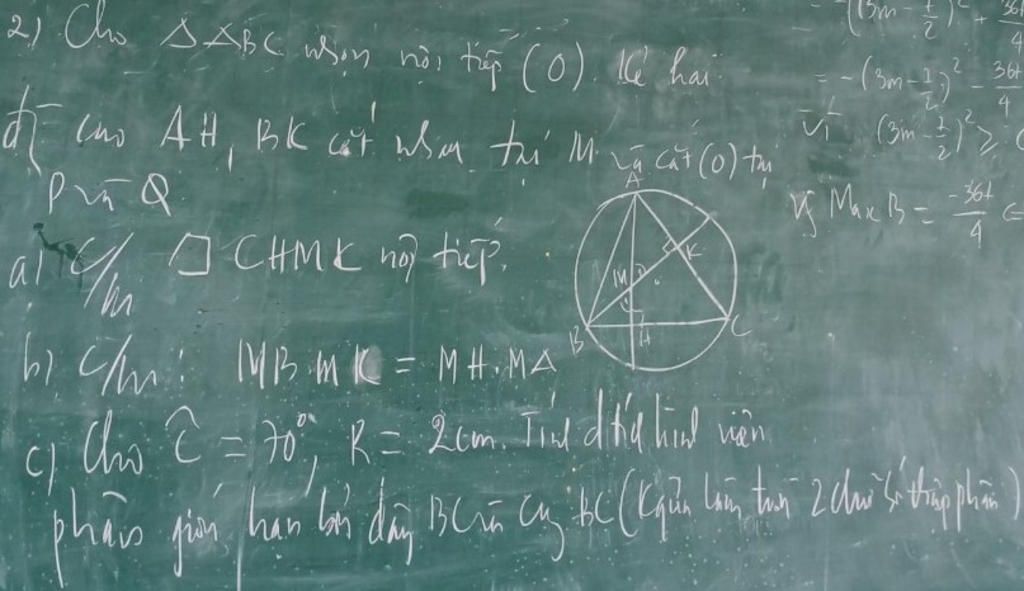 2) Cho △ABC nhọn nội tiếp (O). Kẻ hai
đ⁻ cao AH, BK cắt nhau tại M và cắt (O) tại
P và Q
a) C/m □ CHMK nội tiếp.
b) C/m: MB.MK = MH.MA
c) Cho Ĉ = 70°, R = 2cm. Tính d tích hình viên
phân giới hạn bởi dây BC và cg BC (Kquả làm tròn 2 chữ số thập phân)
A
K
M
B
H
C
-(3m - 1/2)² + 361/4
= -(3m - 1/2)² - 361/4
Vì (3m - 1/2)² ≥
Vậy Max B = -361/4